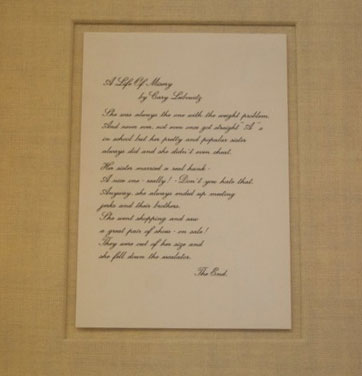 A Life Of Misery
by Cary Leibowitz
She was always the one with the weight problem.
And never ever, not even once got straight "A"s
in school but her pretty and popular sister
always did and she didn't even cheat.
Her sister married a real hunk -
A nice one - really! - Don't you hate that.
Anyway, she always ended up meeting
jerks and their brothers.
She went shopping and saw
a great pair of shoes - on sale!
They were out of her size and
she fell down the escalator.
The End.